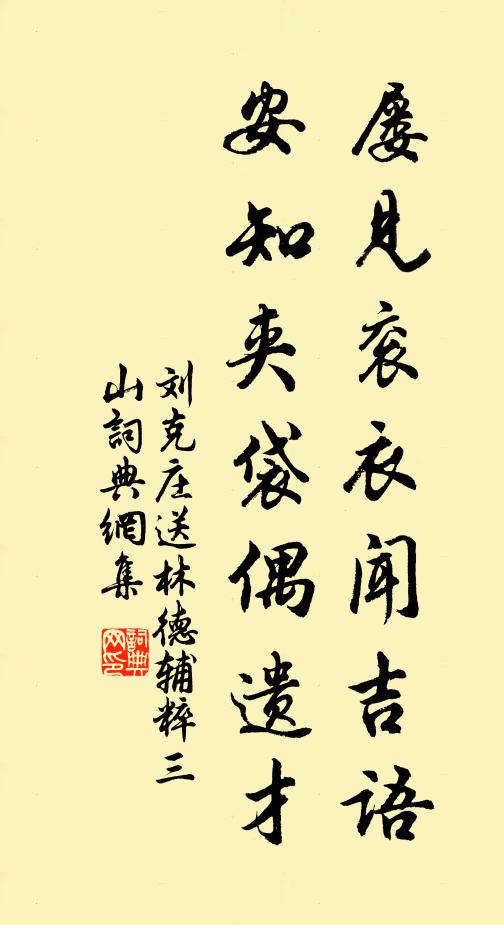 屡见衮衣闻吉语
安知夹袋偶遗才
刘克庄送林德辅粹三
山詞典網集
詞典网印